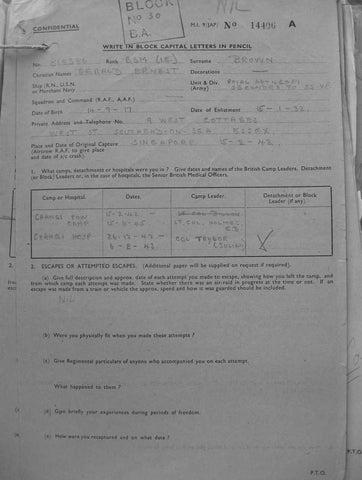 BLOCK
No 30
B.A.
NIL
CONFIDENTIAL
M.I. 9/JAP/ No 14496 A
WRITE IN BLOCK CAPITAL LETTERS IN PENCIL
No. Rank BSM (I.G.) Surname BROWN
Christian Names GERALD ERNEST Decorations
Ship (R.N., U.S.N. or Merchant Navy Unit & Div. (Army) ROYAL ARTILLERY
SECONDED TO
Squadron and Command (R.A.F., A.A.F.)
Date of Birth 14-9-17 Date of Enlistment 15-1-32
Private Address and Telephone No. 9 WEST COTTAGES
WEST ST. SOUTHEND-ON-SEA ESSEX.
Place and Date of Original Capture SINGAPORE 15-2-42.
(Aircrew R.A.F. to give place
and date of a/c crash)
1. What camps, detachments or hospitals were you in? Give dates and names of the British Camp Leaders, Detachment
(or Block) Leaders or, in the case of hospitals, the Senior British Medical Officers.
Camp or Hospital. Dates. Camp Leader. Detachment or Block Leader (if any).
CHANGI POW 15-2-42 -
CAMP 15-8-45. LT. COL. HOLMES
CHANGI HOSP 26-12-42 - COL
6-2-43.
2. 2. ESCAPES OR ATTEMPTED ESCAPES. (Additional paper will be supplied on request if required).
(a) Give full description and approx. date of each attempt you made to escape, showing how you left the camp, and
from which camp each attempt was made. State whether there was an air-raid in progress at the time or not. If an
escape was made from a train or vehicle the approx. speed and how it was guarded should be included.
NIL
(b) Were you physically fit when you made these attempts?
(c) Give Regimental particulars of anyone who accompanied you on each attempt.
What happened to them?
(d) Give briefly your experiences during periods of freedom.
(e) How were you recaptured and on what date?
P.T.O.
P.T.O.